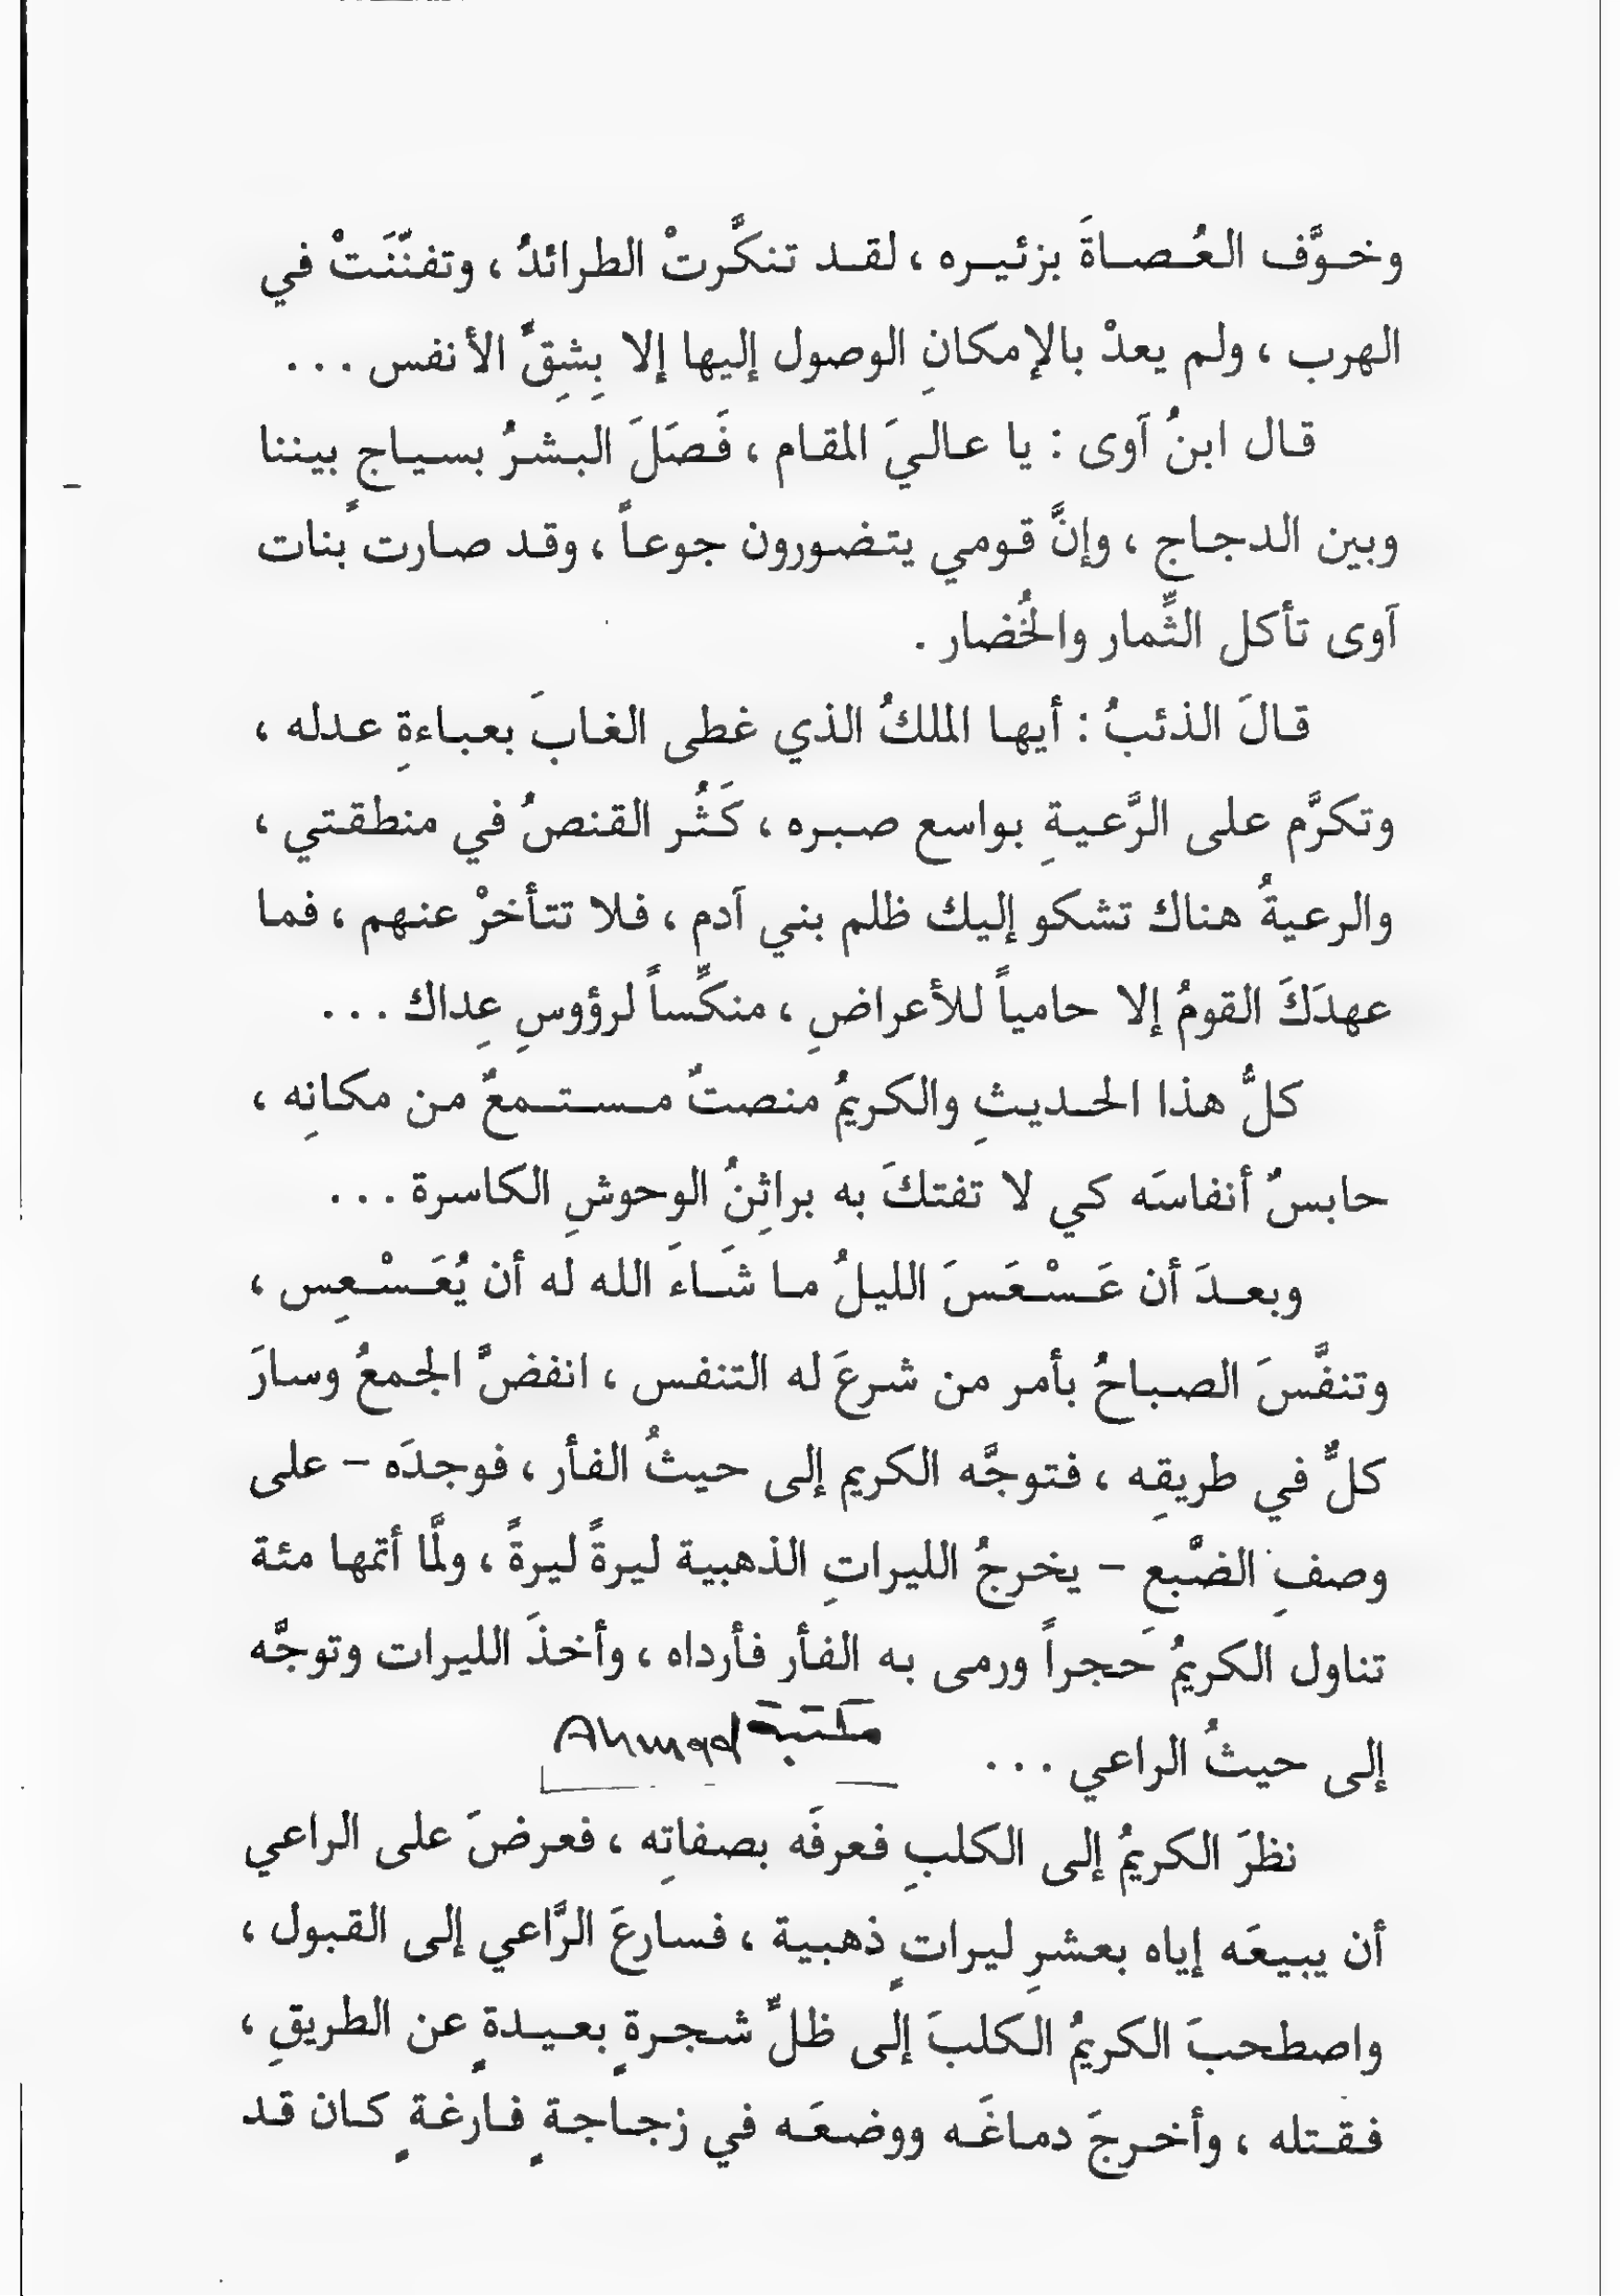 وخوَّف العُصاةَ بزئيره ، لقد تنكَّرتْ الطرائدُ ، وتفنّنَتْ في
الهرب ، ولم يعدْ بالإمكانِ الوصول إليها إلا بِشِقِّ الأنفس ...
قال ابنُ آوى : يا عاليَ المقام ، فَصَلَ البشرُ بسياجٍ بيننا
وبين الدجاج ، وإنَّ قومي يتضورون جوعاً ، وقد صارت بنات
آوى تأكل الثِّمار والخُضار .
قالَ الذئبُ : أيها الملكُ الذي غطى الغابَ بعباءةِ عدله ،
وتكرَّم على الرَّعيةِ بواسع صبره ، كَثُر القنصُ في منطقتي ،
والرعيةُ هناك تشكو إليك ظلم بني آدم ، فلا تتأخرْ عنهم ، فما
عهدَكَ القومُ إلا حامياً للأعراضِ ، منكِّساً لرؤوسِ عِداك ...
كلُّ هذا الحديثِ والكريمُ منصتٌ مستمعٌ من مكانِه ،
حابسٌ أنفاسَه كي لا تفتكَ به براثِنُ الوحوشِ الكاسرة ...
وبعدَ أن عَسْعَسَ الليلُ ما شَاءَ الله له أن يُعَسْعِس ،
وتنفَّسَ الصباحُ بأمر من شرعَ له التنفس ، انفضَّ الجمعُ وسارَ
كلٌّ في طريقِه ، فتوجَّه الكريم إلى حيثُ الفأر ، فوجدَه – على
وصفِ الضَّبعِ – يخرجُ الليراتِ الذهبية ليرةً ليرةً ، ولمَّا أتمها مئة
تناول الكريمُ حَجراً ورمى به الفأر فأرداه ، وأخذَ الليرات وتوجَّه
إلى حيثُ الراعي ...
مكتبة Ahmad
نظرَ الكريمُ إلى الكلبِ فعرفَه بصفاتِه ، فعرضَ على الراعي
أن يبيعَه إياه بعشرِ ليراتٍ ذهبية ، فسارعَ الرَّاعي إلى القبول ،
واصطحبَ الكريمُ الكلبَ إلى ظلِّ شجرةٍ بعيدةٍ عن الطريقِ ،
فقتله ، وأخرجَ دماغَه ووضعَه في زجاجةٍ فارغةٍ كان قد